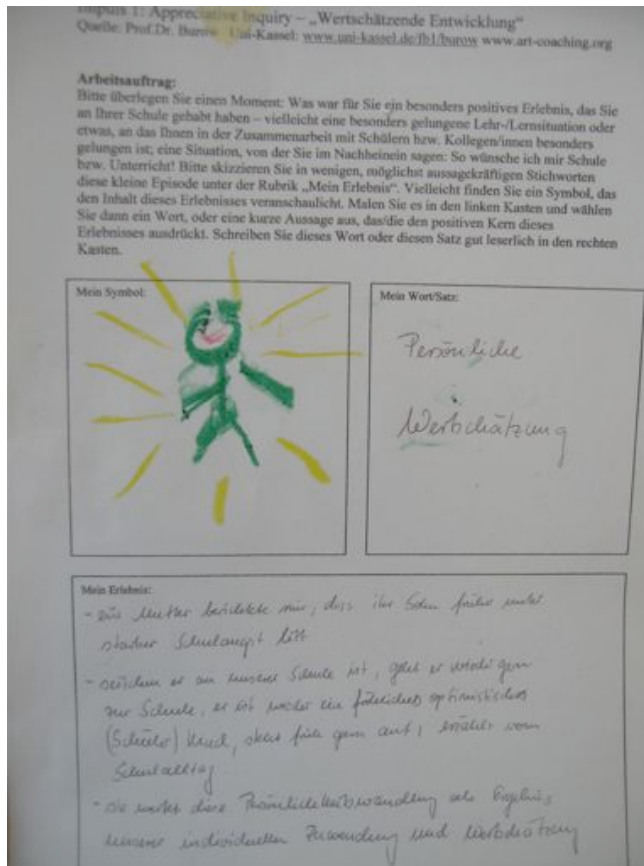 Impuls 1: Appreciative Inquiry – „Wertschätzende Entwicklung“
Quelle: Prof.Dr. Burow Uni-Kassel: www.uni-kassel.de/fb1/burow www.art-coaching.org
Arbeitsauftrag:
Bitte überlegen Sie einen Moment: Was war für Sie ejn besonders positives Erlebnis, das Sie
an Ihrer Schule gehabt haben – vielleicht eine besonders gelungene Lehr-/Lernsituation oder
etwas, an das Ihnen in der Zusammenarbeit mit Schülern bzw. Kollegen/innen besonders
gelungen ist; eine Situation, von der Sie im Nachheinein sagen: So wünsche ich mir Schule
bzw. Unterricht! Bitte skizzieren Sie in wenigen, möglichst aussagekräftigen Stichworten
diese kleine Episode unter der Rubrik „Mein Erlebnis“. Vielleicht finden Sie ein Symbol, das
den Inhalt dieses Erlebnisses veranschaulicht. Malen Sie es in den linken Kasten und wählen
Sie dann ein Wort, oder eine kurze Aussage aus, das/die den positiven Kern dieses
Erlebnisses ausdrückt. Schreiben Sie dieses Wort oder diesen Satz gut leserlich in den rechten
Kasten.
Mein Symbol:
Mein Wort/Satz:
Persönliche
Wertschätzung
Mein Erlebnis:
- eine Mutter berichtete mir, dass ihr Sohn früher unter
starker Schulangst litt
- seitdem er an unserer Schule ist, geht er wieder gern
zur Schule, er ist wieder ein fröhliches optimistisches
(Schüler) Kind, steht früh gern auf, erzählt vom
Schulalltag
- sie wertet diese Persönlichkeitswandlung als Ergebnis
unserer individuellen Zuwendung und Wertschätzung